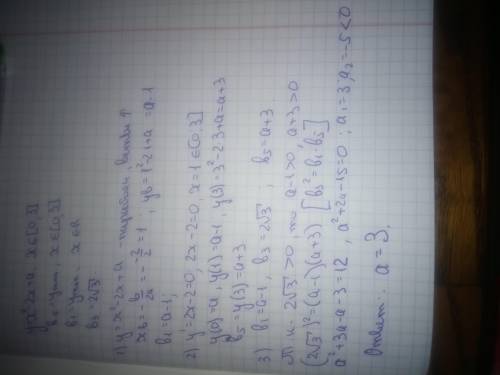 y=x²-2x+a, x∈[0;3]
b₅ - yнаиб. x∈[0;3]
b₁ - yнаим. x∈R
b₃ - 2√3
1) y=x²-2x+a - парабола, ветви ↑
xв = -b/2a = -(-2/2) = 1 ; yв = 1²-2·1+a = a-1
b₁=a-1;
2) y'=2x-2=0, 2x-2=0, x=1∈[0;3]
y(0)=a, y(1)=a-1, y(3)=3²-2·3+a=a+3
b₅=y(3)=a+3
3) b₁=a-1, b₃=2√3 ; b₅=a+3
Т.к. 2√3>0, то a-1>0, a+3>0
(2√3)²=(a-1)(a+3) [b₃²=b₁·b₅]
a²+3a-a-3=12, a²+2a-15=0 ; a₁=3; a₂=-5<0
Ответ: a=3.